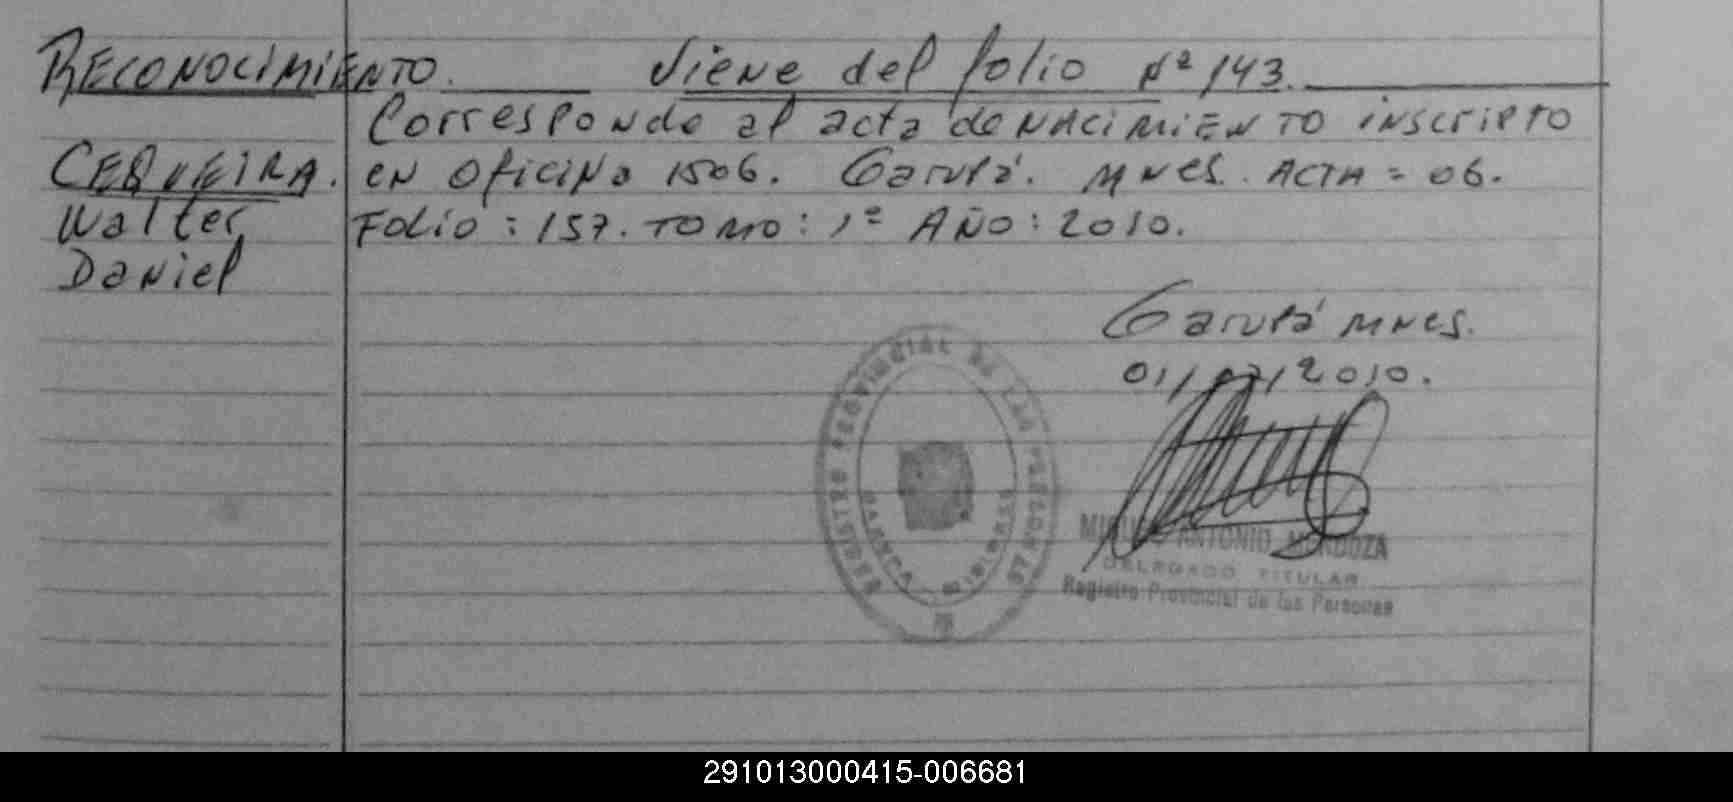 RECONOCIMIENTO. Viene del folio Nº 143.
Corresponde al acta de NACIMIENTO inscripto
CERQUEIRA. en oficina 1506. Garupá. Mnes. ACTA = 06.
Walter Folio: 157. TOMO: 1º AÑO: 2010.
Daniel
Garupá Mnes.
01/07/2010.
REGISTRO PROVINCIAL DE LAS PERSONAS
MISIONES
MIGUEL ANTONIO MENDOZA
DELEGADO TITULAR
Registro Provincial de las Personas
291013000415-006681